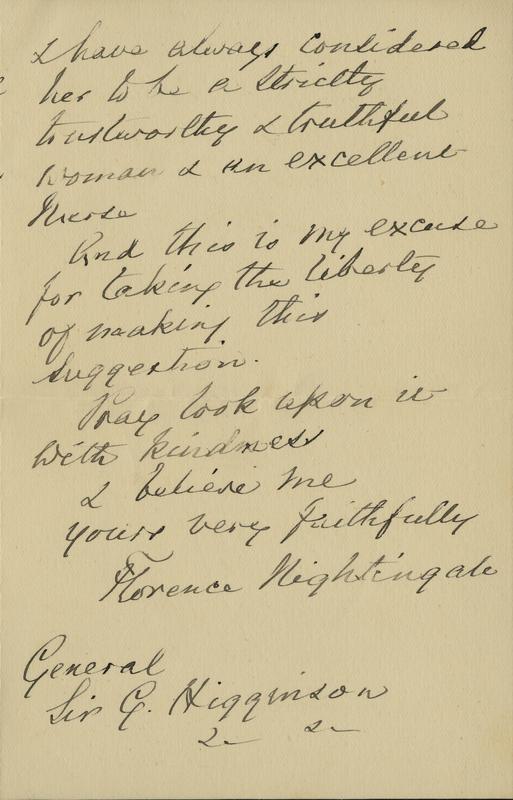 & have always considered
her to be a strictly
trustworthy & truthful
woman & an excellent
Nurse
And this is my excuse
for taking the liberty
of making this
suggestion.
Pray look upon it
with kindness
& believe me
yours very faithfully
Florence Nightingale
General
Sir G. Higginson